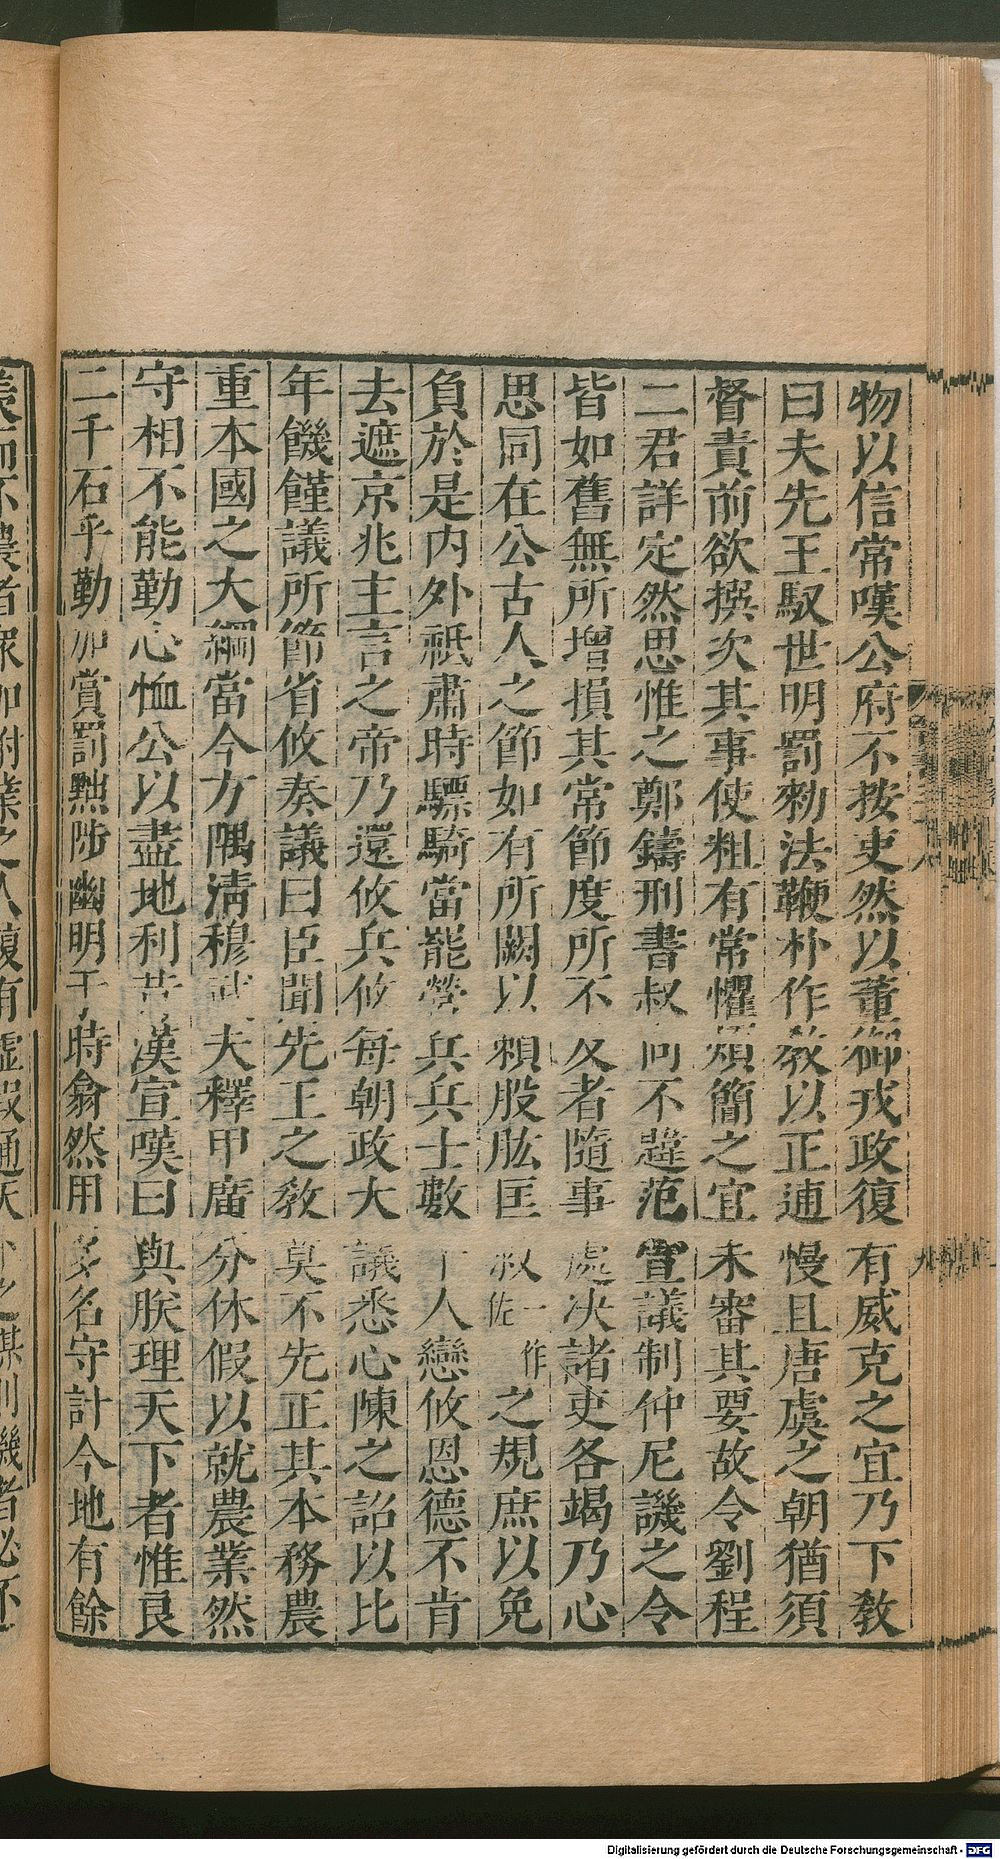 物以信常嘆公府不按吏然以董御戎政復有威克之宜乃下教
曰夫先王馭世明罰勑法鞭朴作教以正逋慢且唐虞之朝猶須
督責前欲撰次其事使粗有常懼煩簡之宜未審其要故令劉程
二君詳定然思惟之鄭鑄刑書叔向不韙范宣議制仲尼譏之令
皆如舊無所增損其常節度所不及者隨事處决諸吏各竭乃心
思同在公古人之節如有所闕以賴股肱匡救佐一作之規庶以免
負於是内外祗肅時驃騎當罷營兵兵士數千人戀攸恩德不肯
去遮京兆主言之帝乃還攸兵攸每朝政大議悉心陳之詔以比
年饑饉議所節省攸奏議曰臣聞先王之教莫不先正其本務農
重本國之大綱當今方隅清穆武夫釋甲廣分休假以就農業然
守相不能勤心恤公以盡地利昔漢宣嘆曰與朕理天下者惟良
二千石乎勤加賞罰黜陟幽明于時翕然用多名守計今地有餘
Digitalisierung gefördert durch die Deutsche Forschungsgemeinschaft - DFG